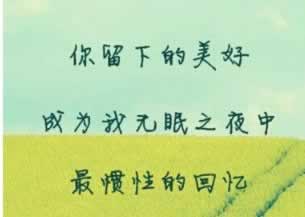 你留下的美好
成为我无眠之夜中
最惯性的回忆